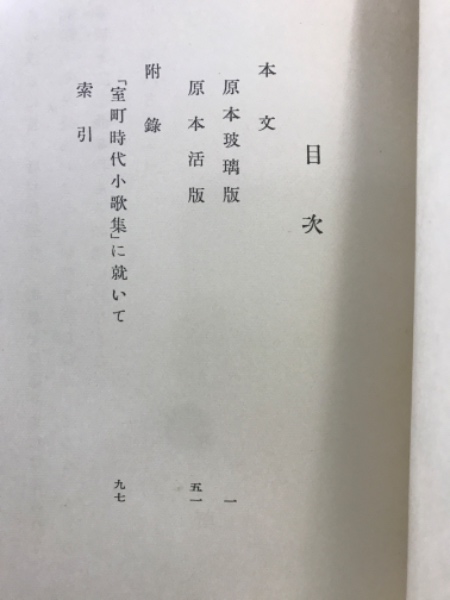 目次
本文
原本玻璃版 一
原本活版 五一
附錄
「室町時代小歌集」に就いて 九七
索引